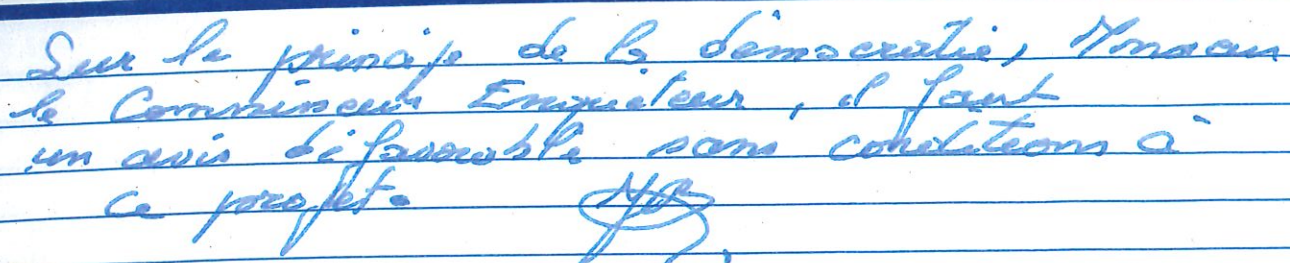 Sur le principe de la démocratie, Monsieur
le Commissaire Enquêteur, il faut
un avis défavorable sans conditions à
ce projet.